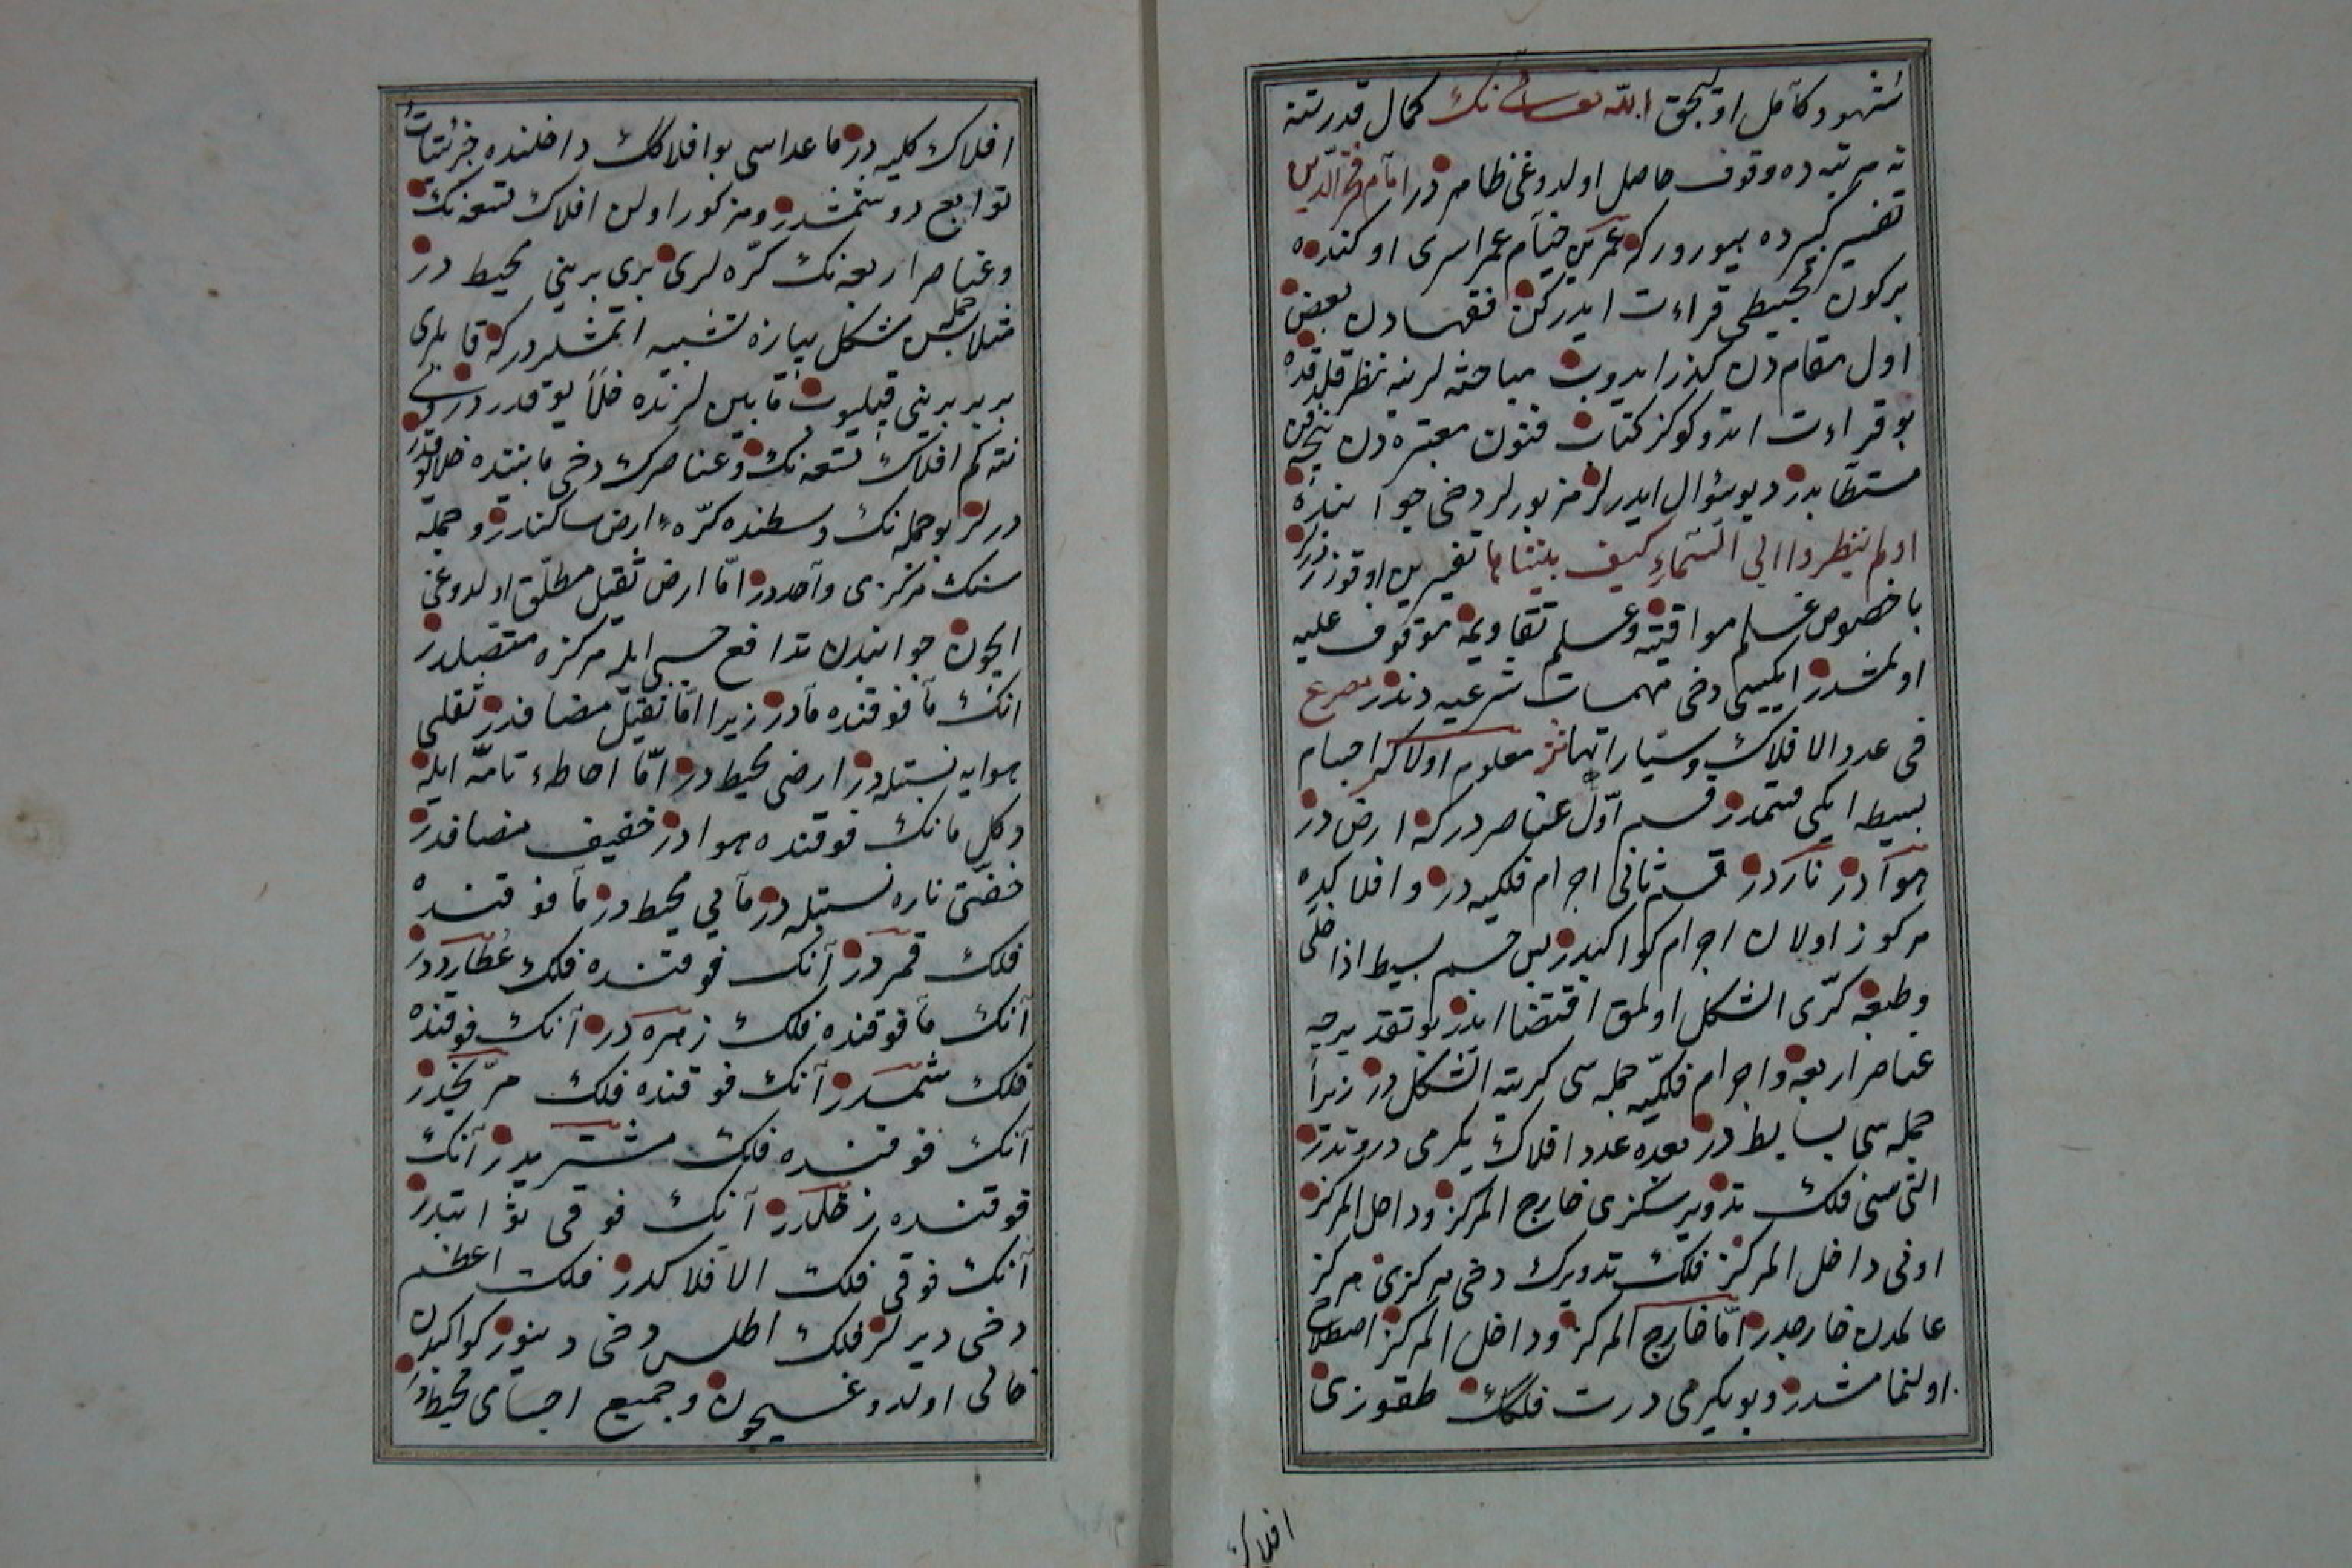 مشهود كامل اولیجق الله تعالی نك كمال قدرتنه
نه مرتبه ده وقوف حاصل اولدوغی ظاهردر امام فخر الدین
تفسیر كبیرده بیورور كه عمر بن خیام عمر اسری اوكنده
بركون مجیطی قراءت ایدركن فقهادن بعض
اول مقامدن گذر ایدوب مباحثه لرینه نظر قلدقده
بو قراءت اتدوكوكز كتاب فنون معتبره دن نیجه فن
مستطابدر دیو سؤال ایدرلر مزبورلر دخی جوابنده
اولم ینظروا الی السماء كیف بنیناها تفسیرین اوقوزدرلر
با خصوص علم مواقیته وعلم تقاویمه موقوف علیه
اولمشدر ایكیسی دخی مهمات شرعیه دندر مصرع
فی عدد الافلاك وسیاراتها معلوم اولاكه اجسام
بسیطه ایكی قسمدر قسم اول عناصردر كه ارض در
هوادر ناردر قسم ثانی اجرام فلكیه در وافلاكده
مركوز اولان اجرام كواكبدر پس جسم بسیط اذا خلی
وطبعه كری الشكل اولمق اقتضا ایدر بو تقدیرجه
عناصر اربعه واجرام فلكیه جمله سی كریة الشكل در زیرا
جمله سی بسایط در بعده عدد افلاك یكرمی درتدر
التی سی فلك تدویر سكزی خارج المركز وداخل المركز
اونی داخل المركز فلك تدویرك دخی مركزی مركز
عالمدن خارجدر اما خارج المركز وداخل المركز اصطلاح
اولنمامشدر وبو یكرمی درت فلكك طقوزی
افلاك
افلاك كلیه در ماعداسی بو افلاكك داخلنده جزئیات
توابع دوشمشدر ومزكور اولن افلاك تسعه نك
وعناصر اربعه نك كره لری بری برینی محیط در
مثلا جمله بش شكل پیازه تشبیه اتمشلردر كه قابلری
بربربرینی قپلیوب قابین لرنده خلأ یوقدر
نته كم افلاك تسعه نك وعناصرك دخی مابیننده خلا یوقدر
درلر بو جمله نك وسطنده كره ء ارض ساكندر وجمله
سنك مركزی واحددر اما ارض ثقیل مطلق اولدوغی
ایچون جوانبدن تدافع حسبی ایله مركزه متصلدر
انك مافوقنده مادر زیرا اما ثقیل مضافدر ثقلی
هوایه نسبتله در ارضی محیط در اما احاطهء تامه ایله
دكل مانك فوقنده هوادر خفیف مضافدر
خفتی ناره نسبتله در مایی محیط در مافوقنده
فلك قمردر آنك فوقنده فلك عطارددر
آنك مافوقنده فلك زهره در آنك فوقنده
فلك شمسدر آنك فوقنده فلك مریخدر
آنك فوقنده فلك مشتریدر آنك
فوقنده زحلدر آنك فوقی ثوابتدر
آنك فوقی فلك الافلاكدر فلك اعظم
دخی دیرلر فلك اطلس دخی دینور كواكبدن
خالی اولدوغیچون وجمیع اجسامی محیط در